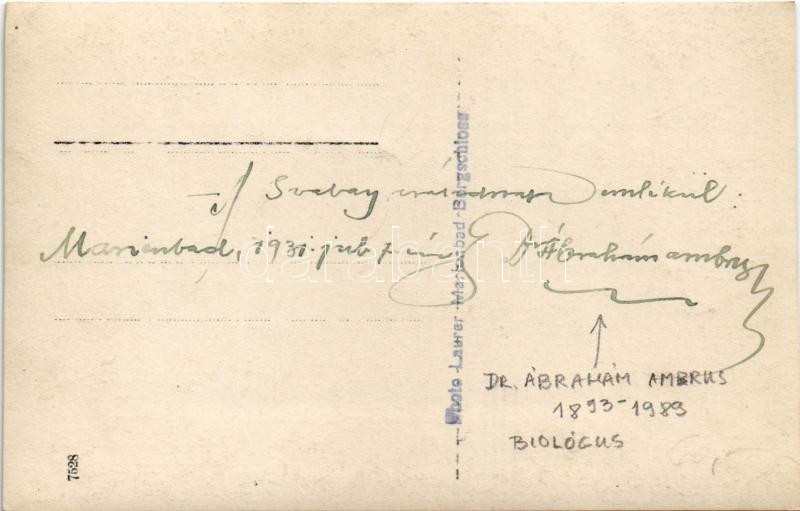 A Svabay családnak emlékül.
Marienbad, 1931. júl 7-én Dr Ábrahám Ambrus
Photo Laurer Marienbad-Bergschloss
DR. ÁBRAHÁM AMBRUS
1893-1989
BIOLÓGUS
7528
darabanth